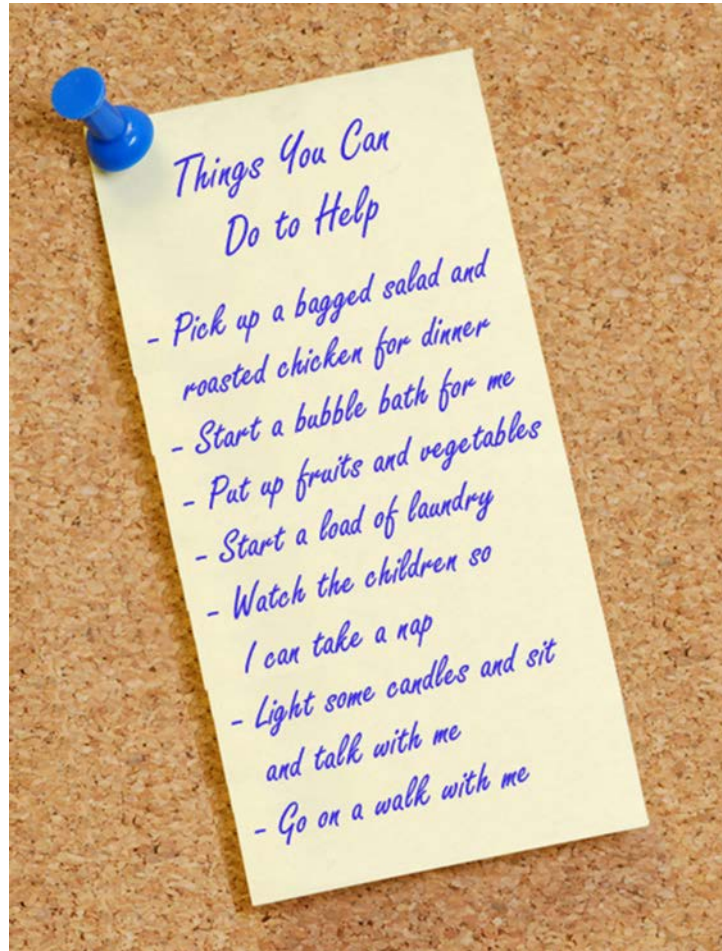 Things You Can
Do to Help
- Pick up a bagged salad and
roasted chicken for dinner
- Start a bubble bath for me
- Put up fruits and vegetables
- Start a load of laundry
- Watch the children so
I can take a nap
- Light some candles and sit
and talk with me
- Go on a walk with me